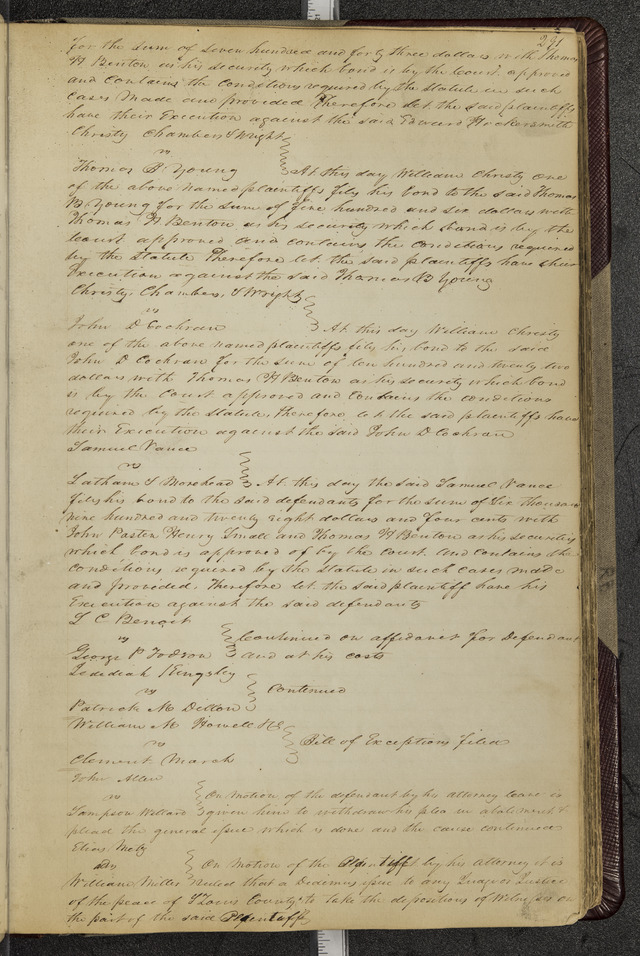 241
for the sum of seven hundred and forty three dollars with Thomas
H Benton as his security which bond is by the court approved
and contains the conditions required by the Statute in such
cases made and provided Therefore let the said plaintiffs
have their Execution against the said Edward Hockersmith
Christy Chambers & Wright
vs
Thomas B Young At this day William Christy one
of the above named plaintiffs files his bond to the said Thomas
B Young for the sum of five hundred and six dollars with
Thomas H Benton as his security which bond is by the
court approved and contains the conditions required
by the Statute Therefore let the said plaintiffs have their
Execution against the said Thomas B Young
Christy, Chambers, & Wright
vs
John D Cochran At this day William Christy
one of the above named plaintiffs files his bond to the said
John D Cochran for the sum of ten hundred and twenty two
dollars with Thomas H Benton as his security which bond
is by the Court approved and contains the conditions
required by the Statute, Therefore let the said plaintiffs have
their Execution against the said John D Cochran
Samuel Vance
vs
Latham & Morehead At this day the said Samuel Vance
files his bond to the said defendants for the sum of Six thousand
nine hundred and twenty eight dollars and four cents with
John Henry Small and Thomas H Benton as his securities
which bond is approved of by the court and contains the
conditions required by the Statute in such cases made
and provided. Therefore let the said plaintiff have his
Execution against the said defendants
L C Benoit
vs
George P Todson Continued on affidavit for Defendant
and at his costs
Jedediah Kingsley
vs Continued
Patrick M Dillon
William M Howell
vs Bill of Exceptions filed
Clement March
John Allen
vs On Motion of the defendant by his attorney leave is
Sampson Willard given him to withdraw his plea in abatement &
plead the general issue which is done and the cause continued
Elias Metz
vs On Motion of the Plaintiff by his attorney it is
William Miller Ruled that a Dedimus issue to any Judge or Justice
of the peace of St Louis County to take the depositions of Witnesses on
the part of the said Plaintiff